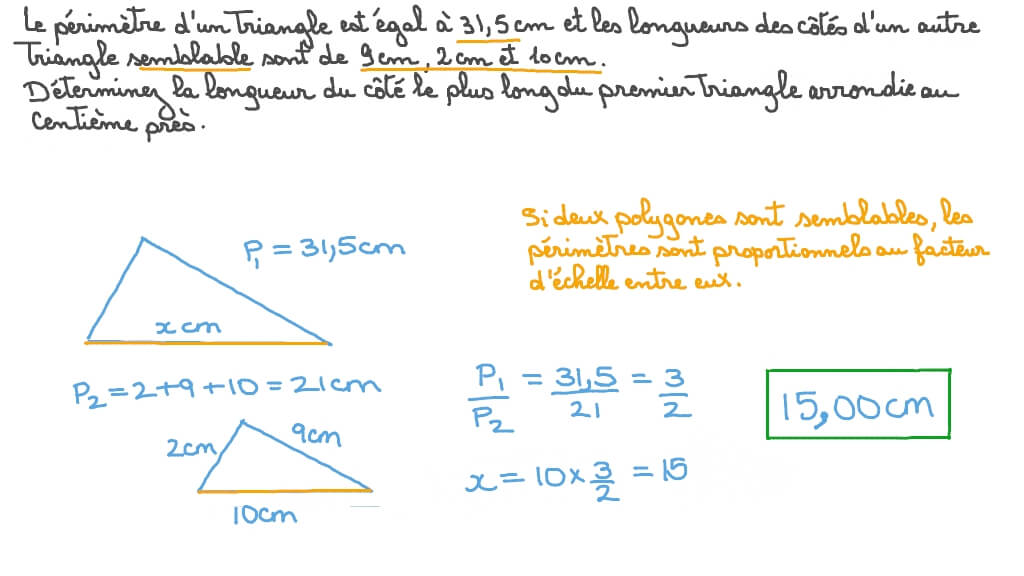 Le périmètre d'un Triangle est égal à 31,5cm et les longueurs des côtés d'un autre
Triangle semblable sont de 9cm, 2cm et 10cm.
Déterminez la longueur du côté le plus long du premier Triangle arrondie au
centième près.
Si deux polygones sont semblables, les
périmètres sont proportionnels au facteur
d'échelle entre eux.
P₁ = 31,5cm
x cm
P₂ = 2+9+10 = 21cm
2cm
9cm
10cm
P₁/P₂ = 31,5/21 = 3/2
x = 10 × 3/2 = 15
15,00cm